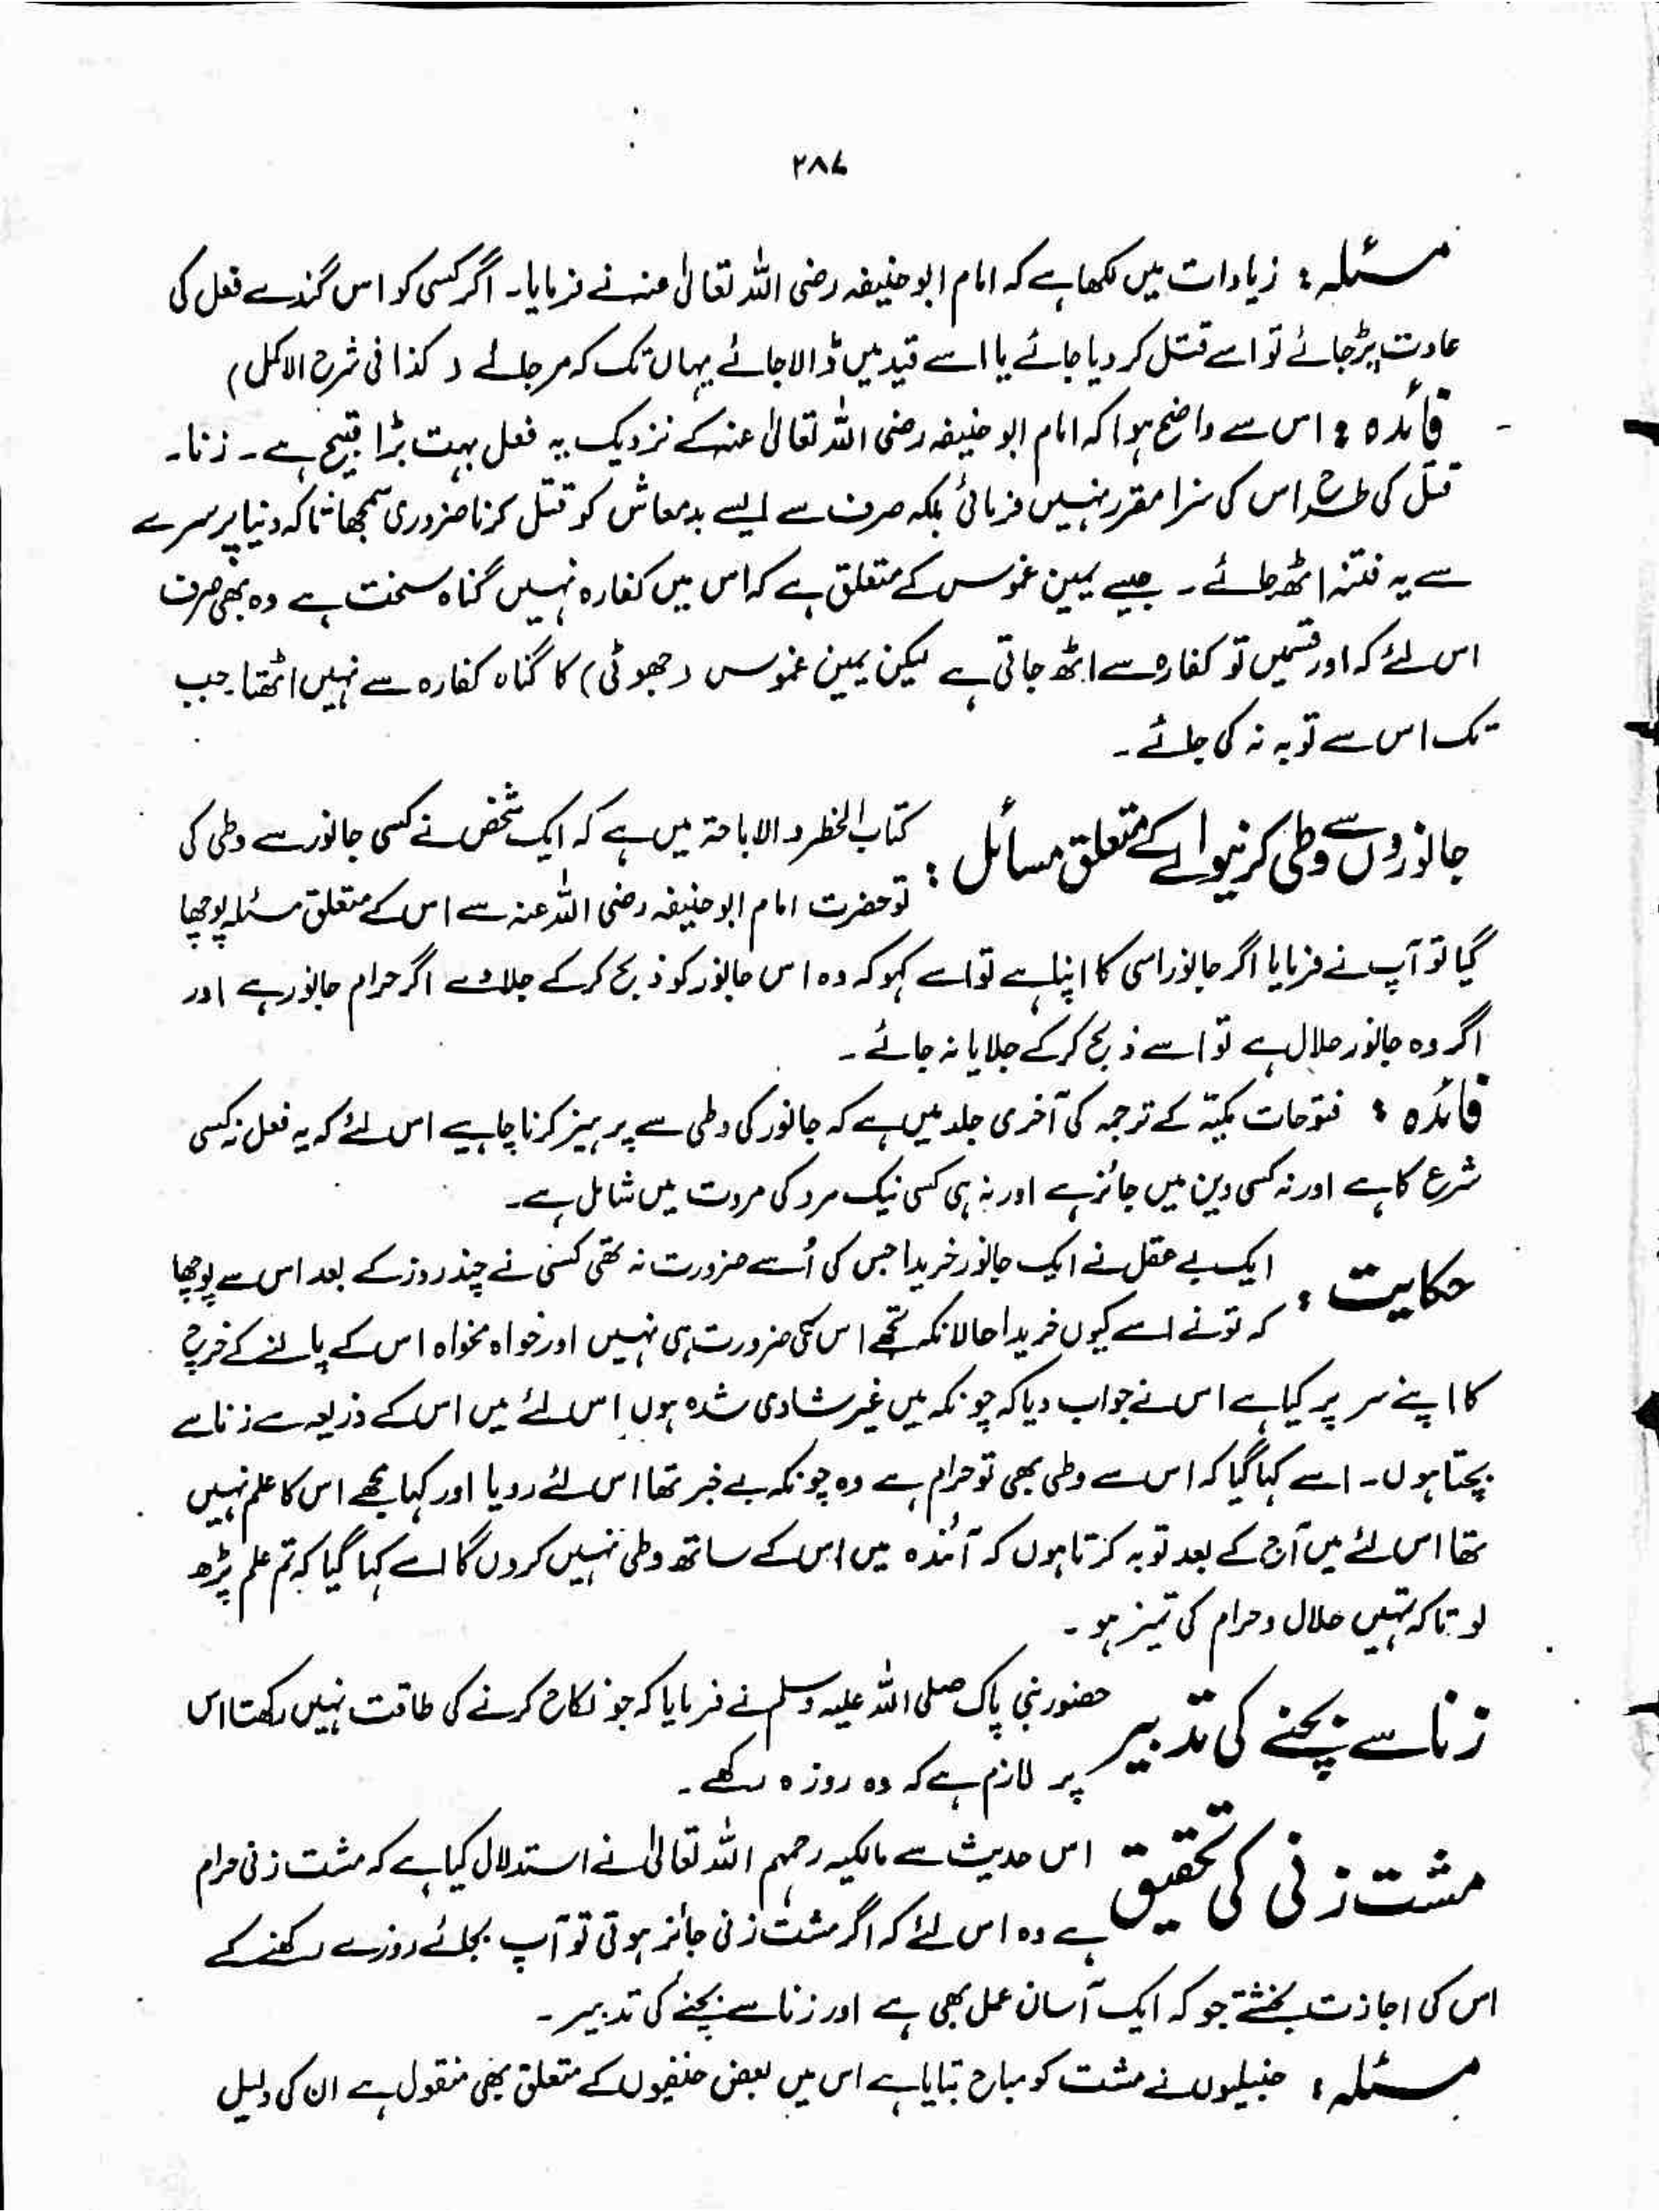 ۲۸۷
مسئلہ : زیادات میں لکھا ہے کہ امام ابو حنیفہ رضی اللہ تعالیٰ عنہ نے فرمایا۔ اگر کسی کو اس گندے فعل کی
عادت پڑ جائے تو اسے قتل کر دیا جائے یا اسے قید میں ڈالا جائے یہاں تک کہ مر جائے ( کذا فی شرح الاکمل )
فائدہ : اس سے واضح ہوا کہ امام ابو حنیفہ رضی اللہ تعالیٰ عنہ کے نزدیک یہ فعل بہت بڑا قبیح ہے ۔ زنا۔
قتل کی طرح اس کی سزا مقرر نہیں فرمائی بلکہ صرف سے ایسے بدمعاش کو قتل کرنا ضروری سمجھا تاکہ دنیا پر سرے
سے یہ فتنہ اٹھ جائے ۔ جیسے یمین غموس کے متعلق ہے کہ اس میں کفارہ نہیں گناہ سخت ہے وہ بھی صرف
اس لئے کہ اور قسمیں تو کفارہ سے اٹھ جاتی ہے لیکن یمین غموس (جھوٹی) کا گناہ کفارہ سے نہیں اٹھتا جب
تک اس سے توبہ نہ کی جائے ۔
جانوروں سے وطی کرنیوالے کے متعلق مسائل : کتاب الخطر و الاباحۃ میں ہے کہ ایک شخص نے کسی جانور سے وطی کی
تو حضرت امام ابو حنیفہ رضی اللہ عنہ سے اس کے متعلق مسئلہ پوچھا
گیا تو آپ نے فرمایا اگر جانور اسی کا اپنا ہے تو اسے کہو کہ وہ اس جانور کو ذبح کر کے جلا دے اگر حرام جانور ہے اور
اگر وہ جانور حلال ہے تو اسے ذبح کر کے جلایا نہ جائے ۔
فائدہ : فتوحات مکیّہ کے ترجمہ کی آخری جلد میں ہے کہ جانور کی وطی سے پرہیز کرنا چاہیے اس لئے کہ یہ فعل نہ کسی
شرع کا ہے اور نہ کسی دین میں جائز ہے اور نہ ہی کسی نیک مرد کی مروت میں شامل ہے۔
حکایت : ایک بے عقل نے ایک جانور خریدا جس کی اُسے ضرورت نہ تھی کسی نے چند روز کے بعد اس سے پوچھا
کہ تو نے اسے کیوں خریدا حالانکہ تجھے اس کی ضرورت ہی نہیں اور خواہ مخواہ اس کے پالنے کے خرچ
کا اپنے سر پر کیا ہے اس نے جواب دیا کہ چونکہ میں غیر شادی شدہ ہوں اس لئے میں اس کے ذریعہ سے زنا سے
بچتا ہوں۔ اسے کہا گیا کہ اس سے وطی بھی تو حرام ہے وہ چونکہ بے خبر تھا اس لئے رو دیا اور کہا مجھے اس کا علم نہیں
تھا اس لئے میں آج کے بعد توبہ کرتا ہوں کہ آئندہ میں اس کے ساتھ وطی نہیں کروں گا اسے کہا گیا کہ تم علم پڑھ
لو تاکہ تمہیں حلال و حرام کی تمیز ہو ۔
زنا سے بچنے کی تدبیر حضور نبی پاک صلی اللہ علیہ وسلم نے فرمایا کہ جو نکاح کرنے کی طاقت نہیں رکھتا اس
پر لازم ہے کہ وہ روزہ رکھے ۔
مشت زنی کی تحقیق اس حدیث سے مالکیہ رحمہم اللہ تعالیٰ نے استدلال کیا ہے کہ مشت زنی حرام
ہے وہ اس لئے کہ اگر مشت زنی جائز ہوتی تو آپ بجائے روزے رکھنے کے
اس کی اجازت بخشتے جو کہ ایک آسان عمل بھی ہے اور زنا سے بچنے کی تدبیر ۔
مسئلہ : حنبلیوں نے مشت کو مباح بتایا ہے اس میں بعض حنفیوں کے متعلق بھی منقول ہے ان کی دلیل